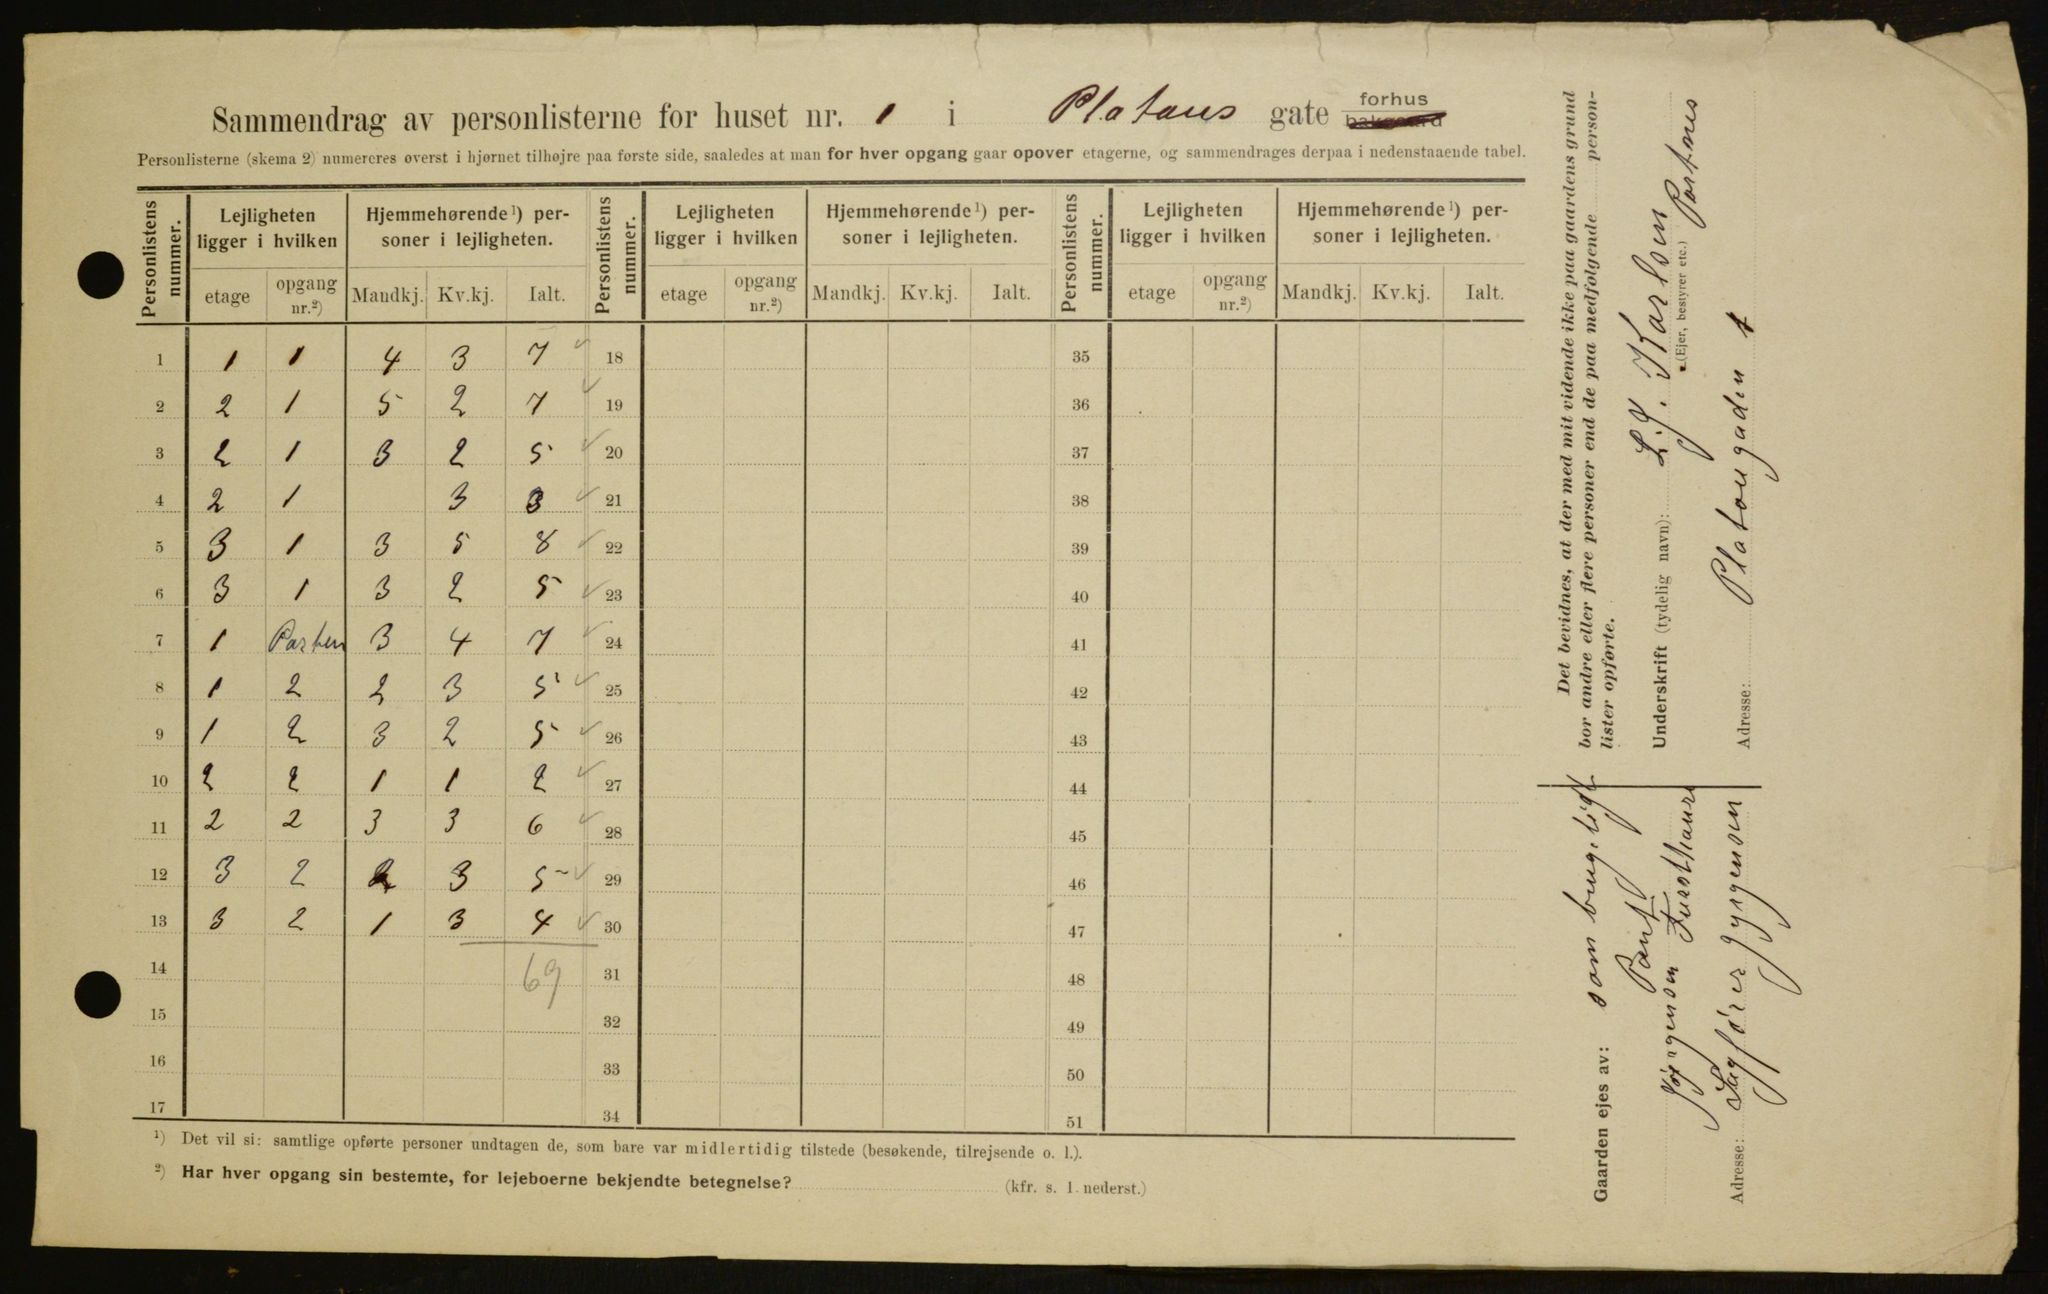 Sammendrag av personlisterne for huset nr. 1 i Platous gate forhus bakgaard
Personlisterne (skema 2) numereres øverst i hjørnet tilhøjre paa første side, saaledes at man for hver opgang gaar opover etagerne, og sammendrages derpaa i nedenstaaende tabel.
Personlistens nummer. Lejligheten ligger i hvilken Hjemmehørende ¹) personer i lejligheten. Personlistens nummer. Lejligheten ligger i hvilken Hjemmehørende ¹) personer i lejligheten. Personlistens nummer. Lejligheten ligger i hvilken Hjemmehørende ¹) personer i lejligheten.
etage opgang nr.²) Mandkj. Kv.kj. Ialt. etage opgang nr.²) Mandkj. Kv.kj. Ialt. etage opgang nr.²) Mandkj. Kv.kj. Ialt.
1 1 1 4 3 7 ✓ 18 35
2 2 1 5 2 7 ✓ 19 36
3 2 1 3 2 5 ✓ 20 37
4 2 1 3 3 ✓ 21 38
5 3 1 3 5 8 ✓ 22 39
6 3 1 3 2 5 ✓ 23 40
7 1 Porten 3 4 7 ✓ 24 41
8 1 2 2 3 5 ✓ 25 42
9 1 2 3 2 5 ✓ 26 43
10 2 2 1 1 2 ✓ 27 44
11 2 2 3 3 6 ✓ 28 45
12 3 2 2 3 5 ✓ 29 46
13 3 2 1 3 4 ✓ 30 47
14 69 31 48
15 32 49
16 33 50
17 34 51
¹) Det vil si: samtlige opførte personer undtagen de, som bare var midlertidig tilstede (besøkende, tilrejsende o. l.).
²) Har hver opgang sin bestemte, for lejeboerne bekjendte betegnelse? (kfr. s. 1 nederst.)
Det bevidnes, at der med mit vidende ikke paa gaardens grund
bor andre eller flere personer end de paa medfølgende person-
lister opførte.
Underskrift (tydelig navn): L. J. Karlsen Portner
(Ejer, bestyrer etc.)
Adresse: Platougaden 1
Gaarden ejes av: som brugeligt
Pant,
Jørgensen
Adresse: Sagfører Jørgensen